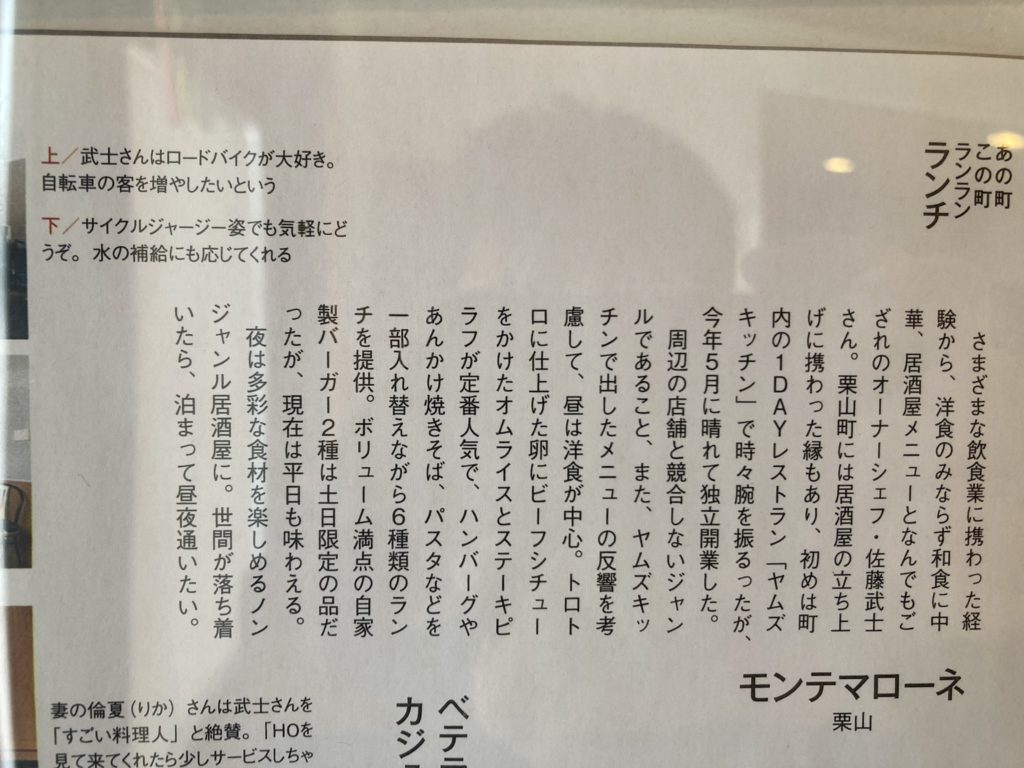 あの町
この町
ランラン
ランチ
上／武士さんはロードバイクが大好き。
自転車の客を増やしたいという
下／サイクルジャージー姿でも気軽にど
うぞ。水の補給にも応じてくれる
さまざまな飲食業に携わった経
験から、洋食のみならず和食に中
華、居酒屋メニューとなんでもご
ざれのオーナーシェフ・佐藤武士
さん。栗山町には居酒屋の立ち上
げに携わった縁もあり、初めは町
内の1DAYレストラン「ヤムズ
キッチン」で時々腕を振るったが、
今年5月に晴れて独立開業した。
周辺の店舗と競合しないジャン
ルであること、また、ヤムズキッ
チンで出したメニューの反響を考
慮して、昼は洋食が中心。トロト
ロに仕上げた卵にビーフシチュー
をかけたオムライスとステーキピ
ラフが定番人気で、ハンバーグや
あんかけ焼きそば、パスタなどを
一部入れ替えながら6種類のラン
チを提供。ボリューム満点の自家
製バーガー2種は土日限定の品だ
ったが、現在は平日も味わえる。
夜は多彩な食材を楽しめるノン
ジャンル居酒屋に。世間が落ち着
いたら、泊まって昼夜通いたい。
モンテマローネ
栗山
ベテ
カジ
妻の倫夏（りか）さんは武士さんを
「すごい料理人」と絶賛。「HOを
見て来てくれたら少しサービスしちゃ